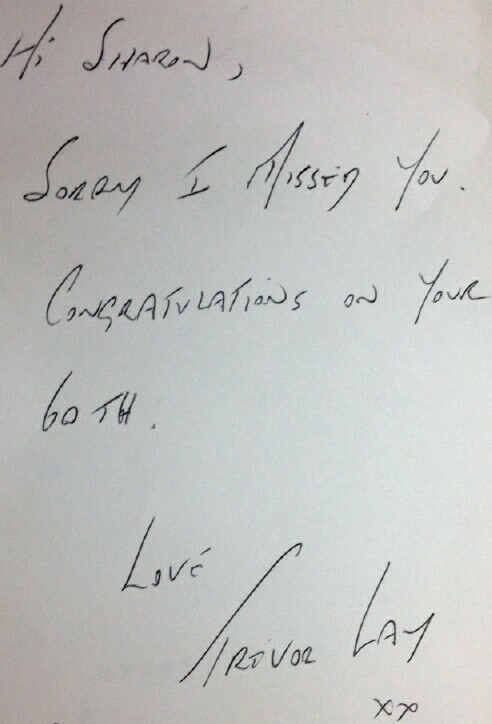 Hi SHARON,
SORRY I MISSED YOU.
CONGRATULATIONS ON YOUR
60TH.
LOVE
TREVOR LAY
xx